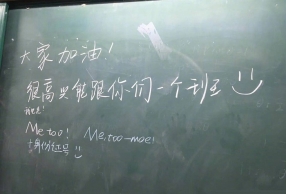 大家加油！
很高兴能跟你们一个班
我也是！
Me too! Me, too-moe!